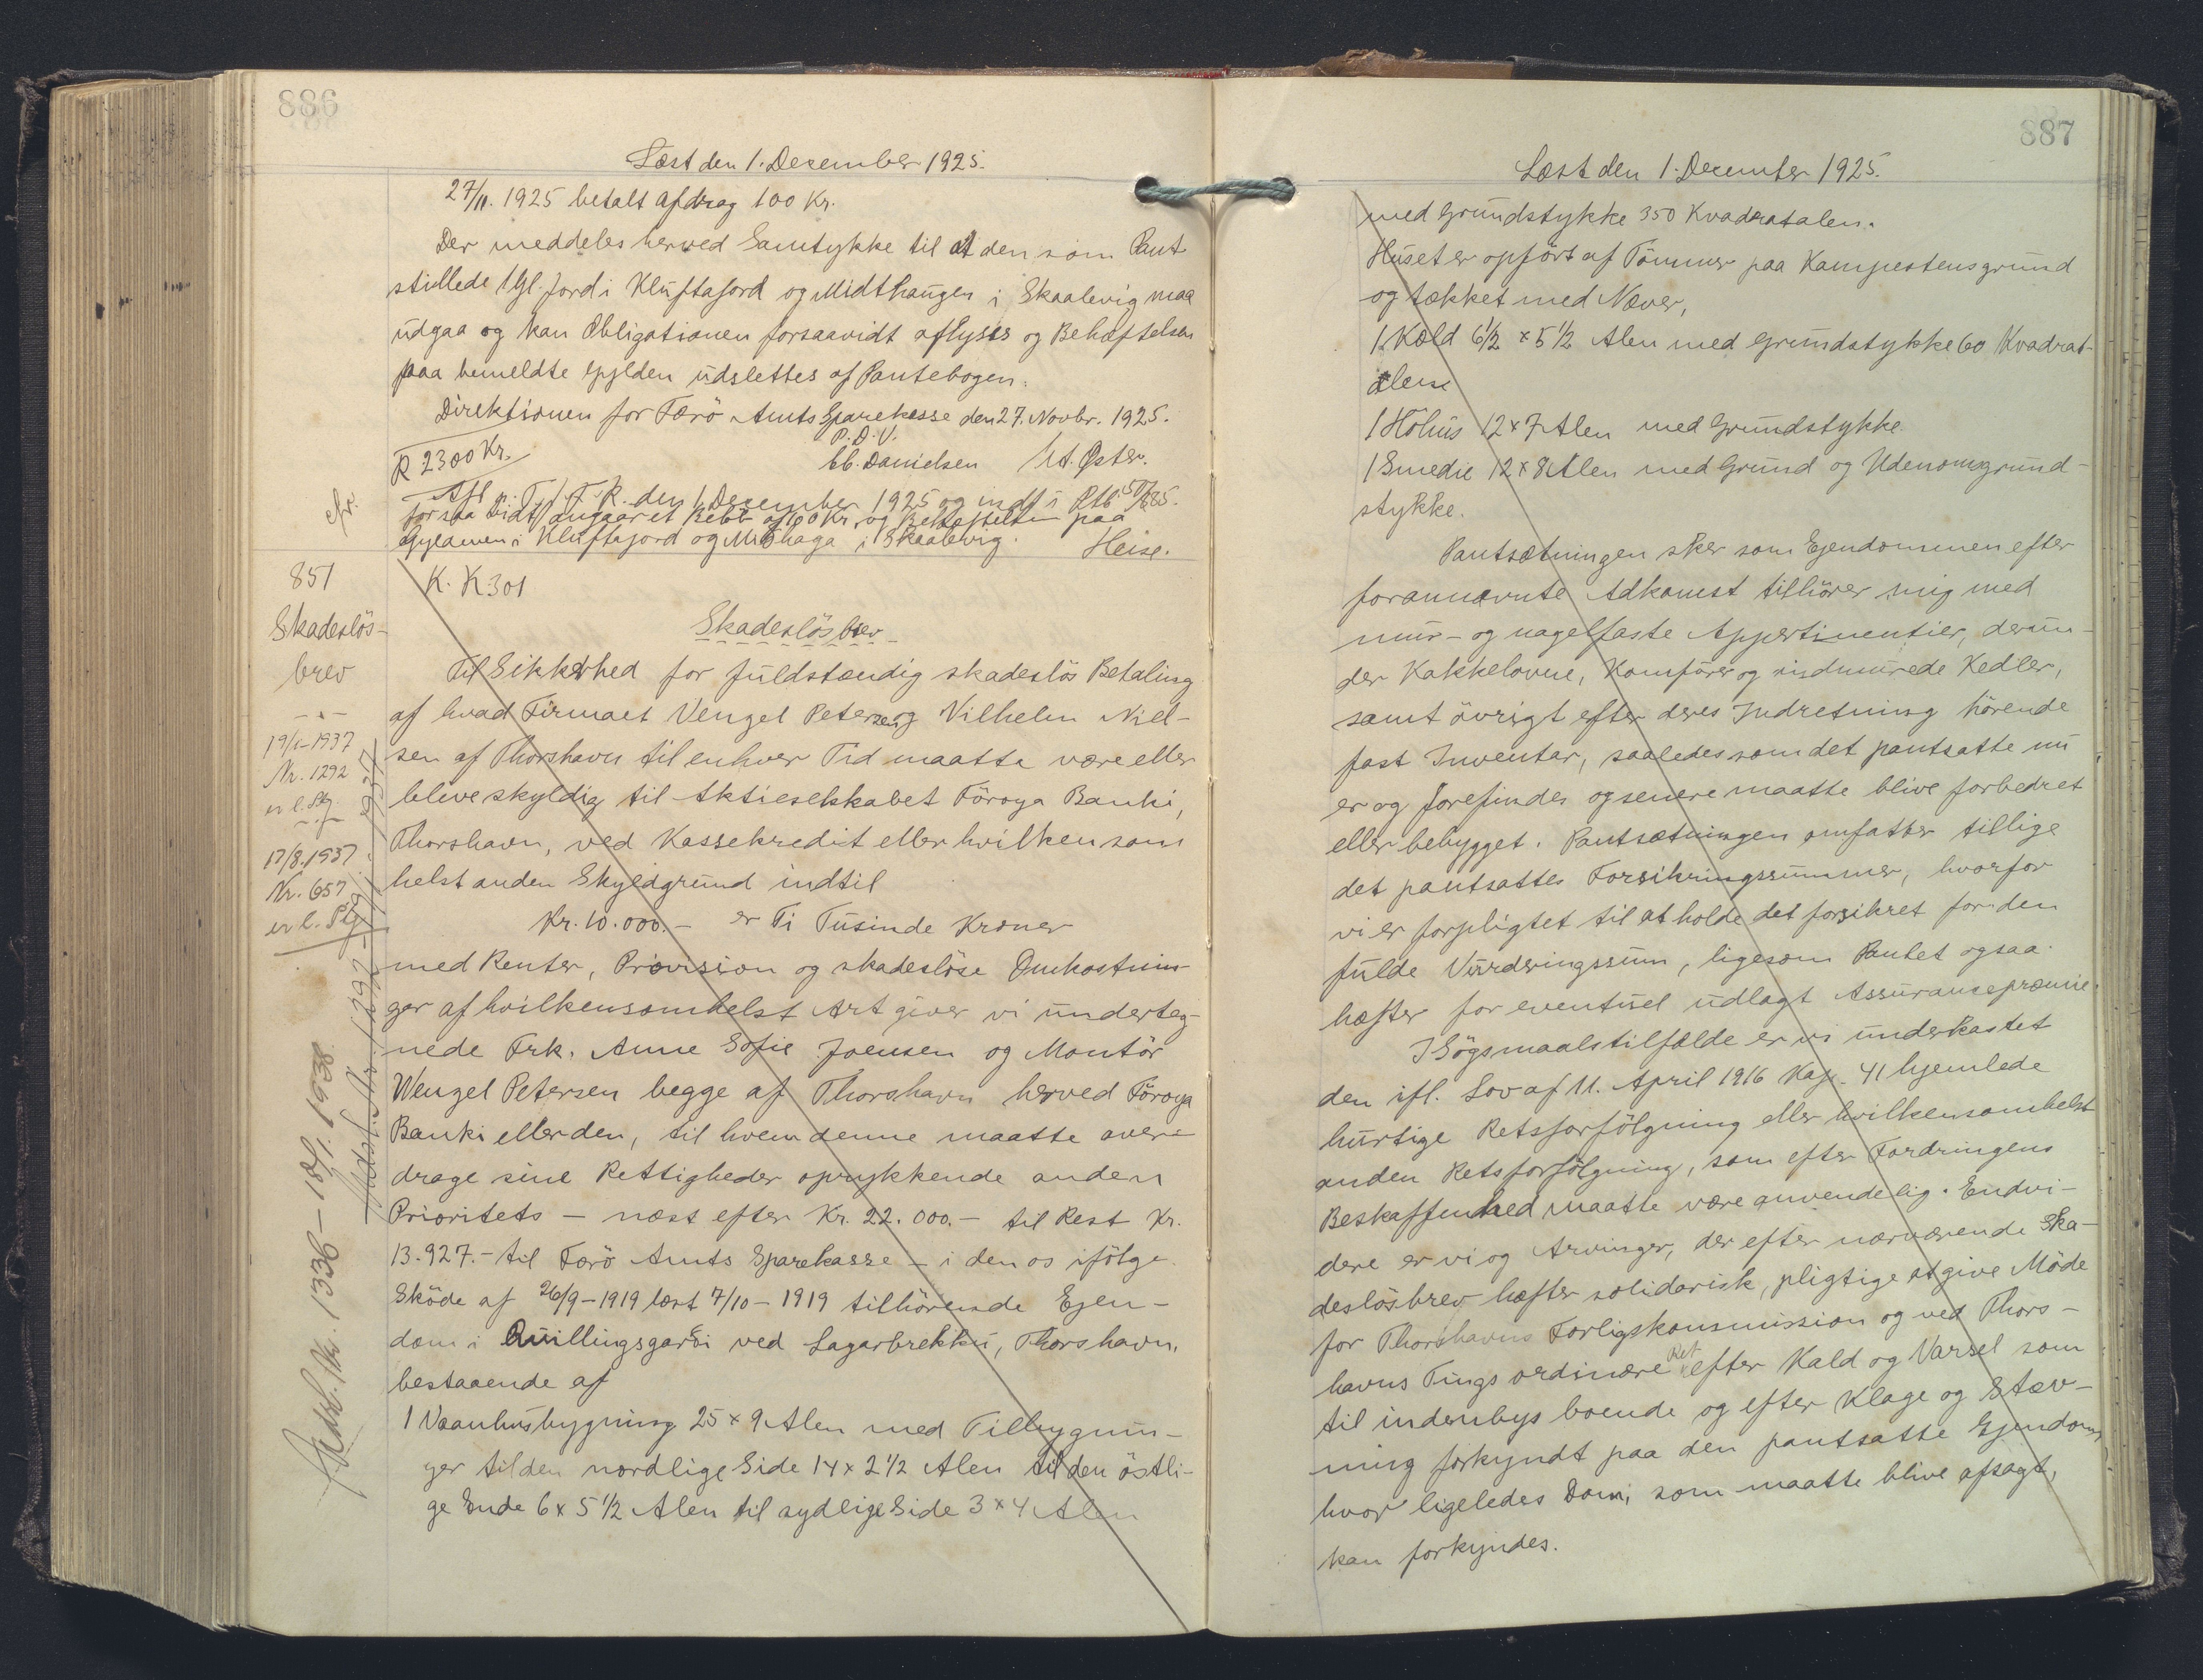 886
Læst den 1. December 1925.
27/11. 1925 betalt afdrag 100 Kr.
Der meddeles herved Samtykke til at den som Pant
stillede 1 Gl. Jord i Kluftajord og Midthaugen i Skaalevig maa
udgaa og kan Obligationen forsaavidt aflyses og Behæftelsen
paa bemeldte Gylden udslettes af Pantebogen.
Direktionen for Færö Amts Sparekasse den 27. Novbr. 1925.
P. D. V.
R 2300 Kr.
C. Danielsen M. Øster.
Afl. p. T. F. R. den 1. December 1925 og indf i Ptb.
forsaa vidt angaar et Beløb af 100 Kr. og Behæftelsen paa
Gyldenen i Kluftajord og Miðhaga i Skaalevig. Heise.
851
Skadeslös-
brev
19/1-1937
Nr. 1292
er l. Ptg.
17/8.1937
Nr. 657
er l. Ptg
K. K 301
Skadeslösbrev
Til Sikkerhed for fuldstændig skadeslös Betaling
af hvad Firmaet Venzel Petersen og Vilhelm Niel-
sen af Thorshavn til enhver Tid maatte være eller
blive skyldig til Aktieselskabet Föroya Banki,
Thorshavn, ved Kassekredit eller hvilken som
helst anden Skyldgrund indtil
Kr. 10.000.- er Ti Tusinde Kroner
med Renter, Provision og skadeslöse Omkostnin-
ger af hvilkensomhelst Art giver vi underteg-
nede Frk. Anne Sofie Joensen og Montör
Wenzel Petersen begge af Thorshavn herved Föroya
Banki eller den, til hvem denne maatte over-
drage sine Rettigheder oprykkende anden
Prioritets - næst efter Kr. 22.000.- til Rest Kr.
13.927.- til Færö Amts Sparekasse - i den os ifölge
Sköde af 26/9-1919 læst 7/10-1919 tilhörende Ejen-
dom i Quillingsgarði ved Lagarbrekku, Thorshavn,
bestaaende af
1 Vaanhusbygning 25 x 9 Alen med Tilbygnin-
ger til den nordlige Side 14 x 2 1/2 Alen til den östli-
ge Ende 6 x 5 1/2 Alen til sydlige Side 3 x 4 Alen
Nr. 1292 - 19/1 1937
Nr. 1336 - 18/1. 1938.
887
Læst den 1. December 1925.
med Grundstykke 350 Kvadratalen.
Huset er opfört af Tömmer paa Kampestensgrund
og tækket med Næver,
1 Kæld 6 1/2 x 5 1/2 Alen med Grundstykke 60 Kvadrat-
alen
1 Höhus 12 x 7 Alen med Grundstykke
1 Smedie 12 x 8 Alen med Grund og Udenomsgrund-
stykke.
Pantsætningen sker som Ejendommen efter
forannævnte Adkomst tilhörer mig med
mur- og nagelfaste Appertinentier, derun-
der Kakkelovne, Komförer og indmurede Kedler,
samt övrigt efter deres Indretning hörende
fast Inventar, saaledes som det pantsatte nu
er og forefindes og senere maatte blive forbedret
eller bebygget. Pantsætningen omfatter tillige
det pantsattes Forsikringssummer, hvorfor
vi er forpligtet til at holde det forsikret for den
fulde Vurderingssum, ligesom Pantet ogsaa
hæfter for eventuel udlagt Assurancepræmie.
I Sögsmaalstilfælde er vi underkastet
den ifl. Lov af 11. April 1916 Kap. 41 hjemlede
hurtige Retsforfölgning eller hvilkensomhelst
anden Retsforfölgning, som efter Fordringens
Beskaffenhed maatte være anvendelig. Endvi-
dere er vi og Arvinger, der efter nærværende Ska-
deslösbrev hæfter solidarisk, pligtige at give Möde
for Thorshavns Forligskommission og ved Thors-
havns Tings ordinære Ret efter Kald og Varsel som
til indenbys boende og efter Klage og Stæv-
ning forkyndt paa den pantsatte Ejendom,
hvor ligeledes Dom, som maatte blive afsagt,
kan forkyndes.